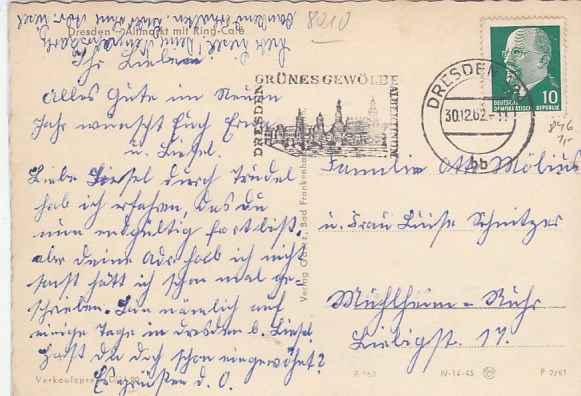 8210
Dresden, Altmarkt mit Ring-Café
Ihr Lieben!
Alles Gute im Neuen
Jahr wünscht Euch Erna
u. Liesel.
Liebe Liesel durch Trudel
hab ich erfahren, das du
nun endgültig fort bist.
aber deine Adr. hab ich nicht
sonst hätt ich schon mal ge-
schrieben. Bin nämlich auf
einige Tage in Dresden b. Liesel.
Hast du dich schon eingewöhnt?
Es grüßen d. O.
DRESDEN
GRÜNES GEWÖLBE
ALBERTINUM
DRESDEN
30.12.62
bb
DEUTSCHE
DEMOKRATISCHE REPUBLIK
10
846
Familie Otto Möbius
u. Frau Luise Schnitzer
Mühlheim-Ruhr
Liebigst. 17.
Verlag Bad Frankenhausen
Verkaufspreis
A 163 IV-14-45 P 2/61